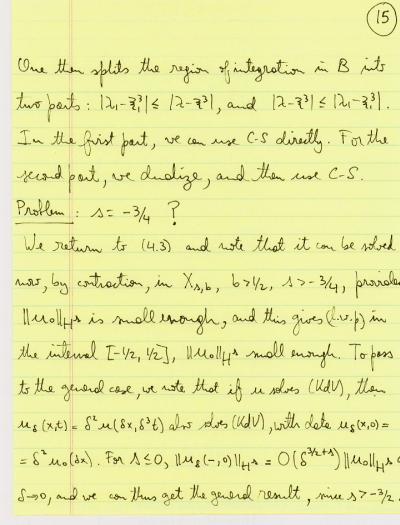 15
One then splits the region of integration in B into
two parts: |λ₁-ξ₁³| ≤ |λ-ξ³|, and |λ-ξ³| ≤ |λ₁-ξ₁³|.
In the first part, we can use C-S directly. For the
second part, we dualize, and then use C-S.
Problem: s = -3/4 ?
We return to (4.3) and note that it can be solved
now, by contraction, in X_{s,b}, b>1/2, s>-3/4, provided
||u₀||_{H^s} is small enough, and this gives (l.w.p) in
the interval [-1/2, 1/2], ||u₀||_{H^s} small enough. To pass
to the general case, we note that if u solves (KdV), then
u_δ(x,t) = δ²u(δx, δ³t) also solves (KdV), with data u_δ(x,0) =
= δ²u₀(δx). For s≤0, ||u_δ(-,0)||_{H^s} = O(δ^{3/2+s}) ||u₀||_{H^s}
δ→0, and we can thus get the general result, since s>-3/2.